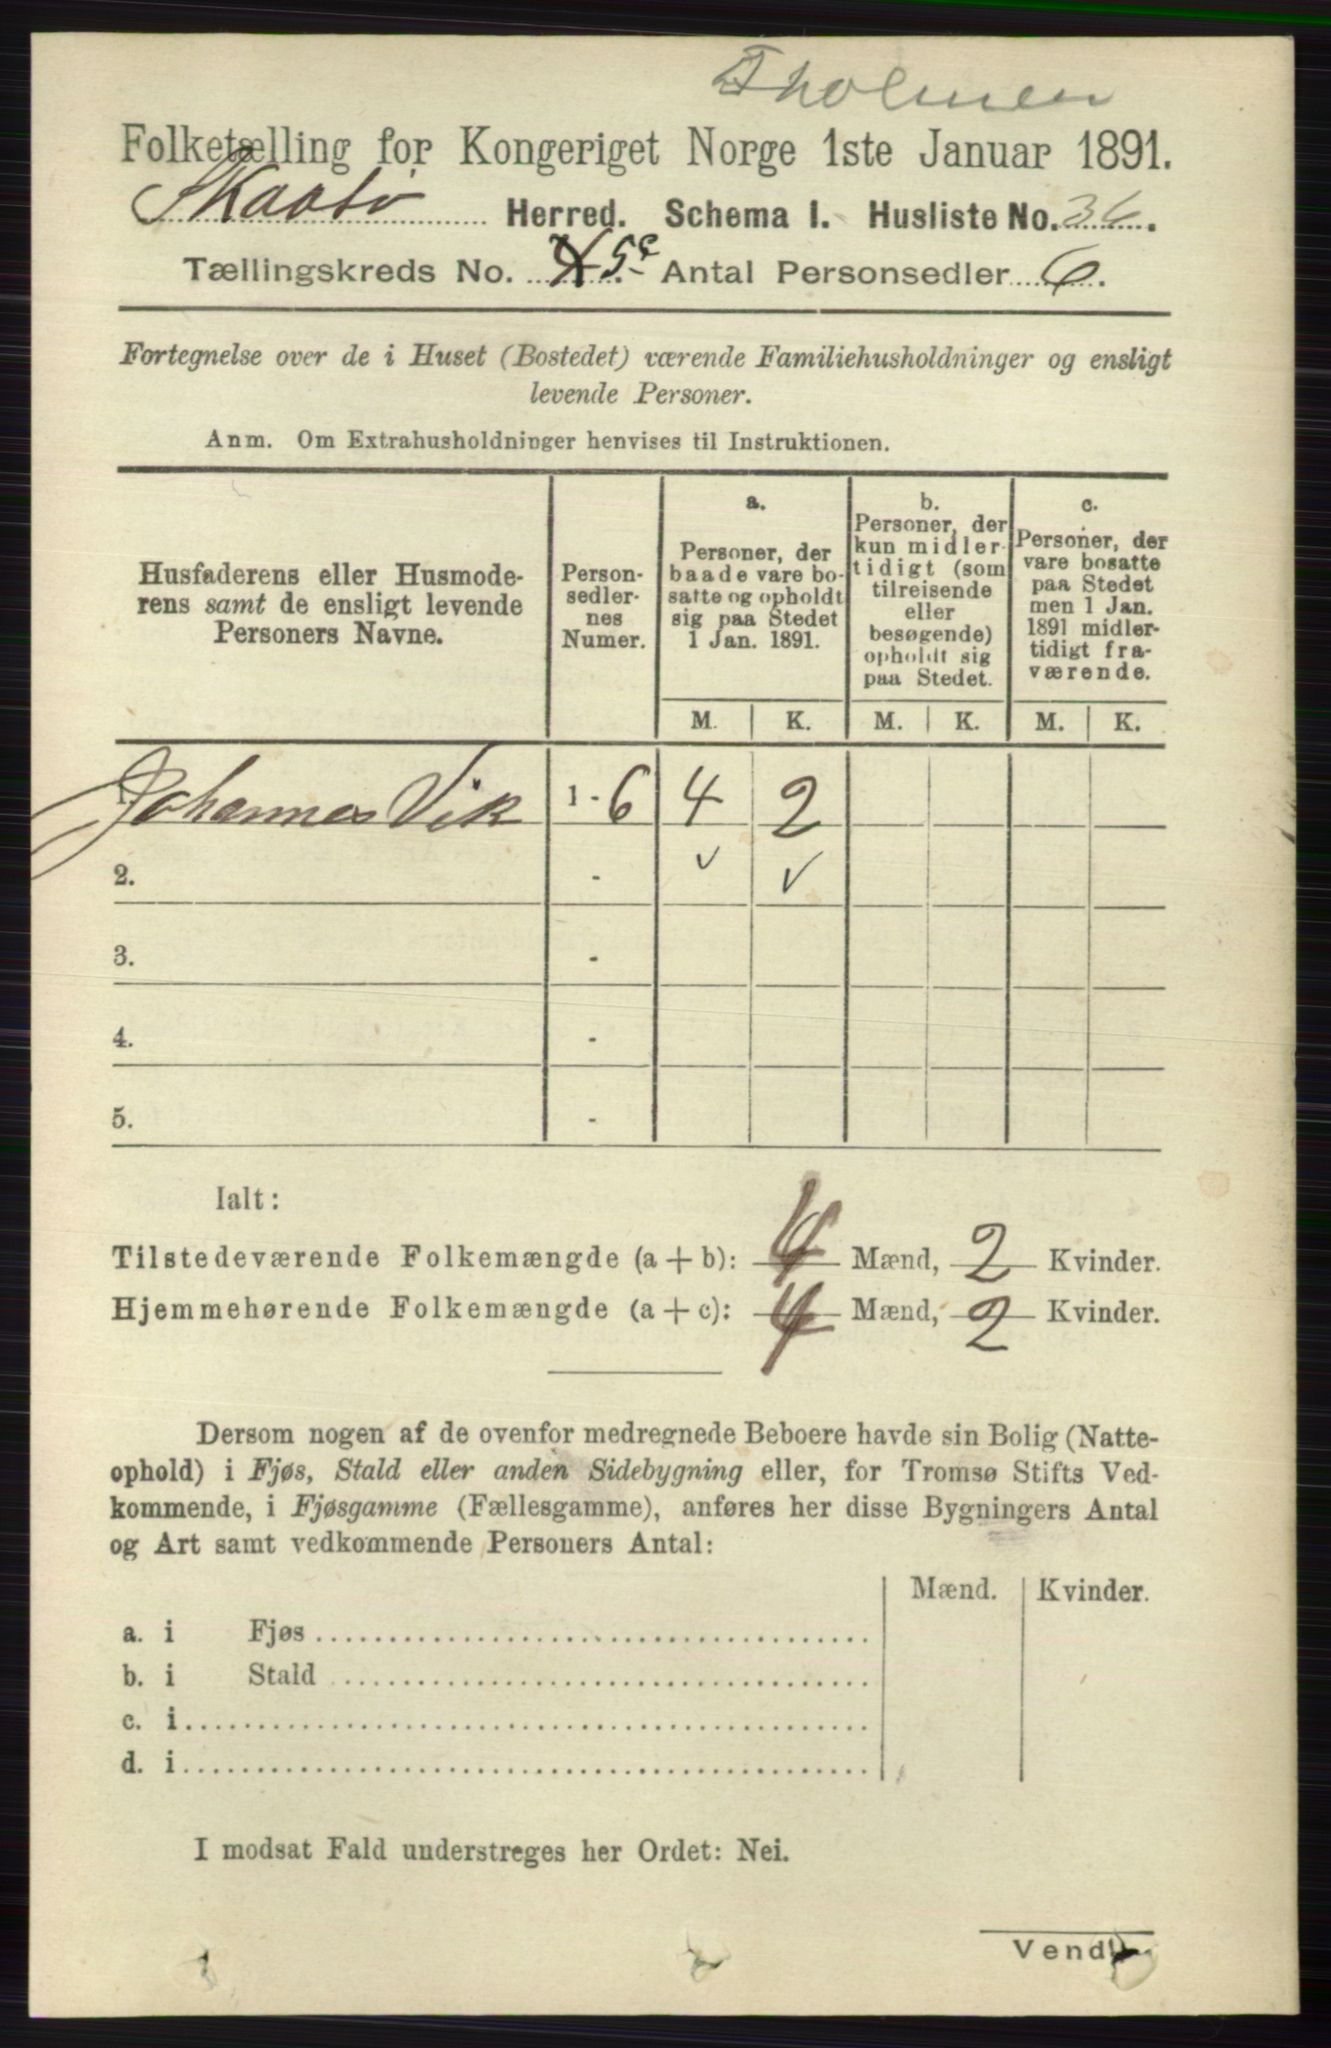 Tholmen
Folketælling for Kongeriget Norge 1ste Januar 1891.
Skaatø Herred. Schema I. Husliste No. 36.
Tællingskreds No. 4 5c Antal Personsedler 6.
Fortegnelse over de i Huset (Bostedet) værende Familiehusholdninger og ensligt
levende Personer.
Anm. Om Extrahusholdninger henvises til Instruktionen.
Husfaderens eller Husmode-
rens samt de ensligt levende
Personers Navne.
Person-
sedler-
nes
Numer.
a.
Personer, der
baade vare bo-
satte og opholdt
sig paa Stedet
1 Jan. 1891.
b.
Personer, der
kun midler-
tidigt (som
tilreisende
eller
besøgende)
opholdt sig
paa Stedet.
c.
Personer, der
vare bosatte
paa Stedet
men 1 Jan.
1891 midler-
tidigt fra-
værende.
M. K. M. K. M. K.
1. Johannes Vik 1 - 6 4 2
2. - ✓ ✓
3. -
4. -
5. -
Ialt:
Tilstedeværende Folkemængde (a + b): 4 Mænd, 2 Kvinder.
Hjemmehørende Folkemængde (a + c): 4 Mænd, 2 Kvinder.
Dersom nogen af de ovenfor medregnede Beboere havde sin Bolig (Natte-
ophold) i Fjøs, Stald eller anden Sidebygning eller, for Tromsø Stifts Ved-
kommende, i Fjøsgamme (Fællesgamme), anføres her disse Bygningers Antal
og Art samt vedkommende Personers Antal:
Mænd. Kvinder.
a. i Fjøs
b. i Stald
c. i
d. i
I modsat Fald understreges her Ordet: Nei.
Vend!